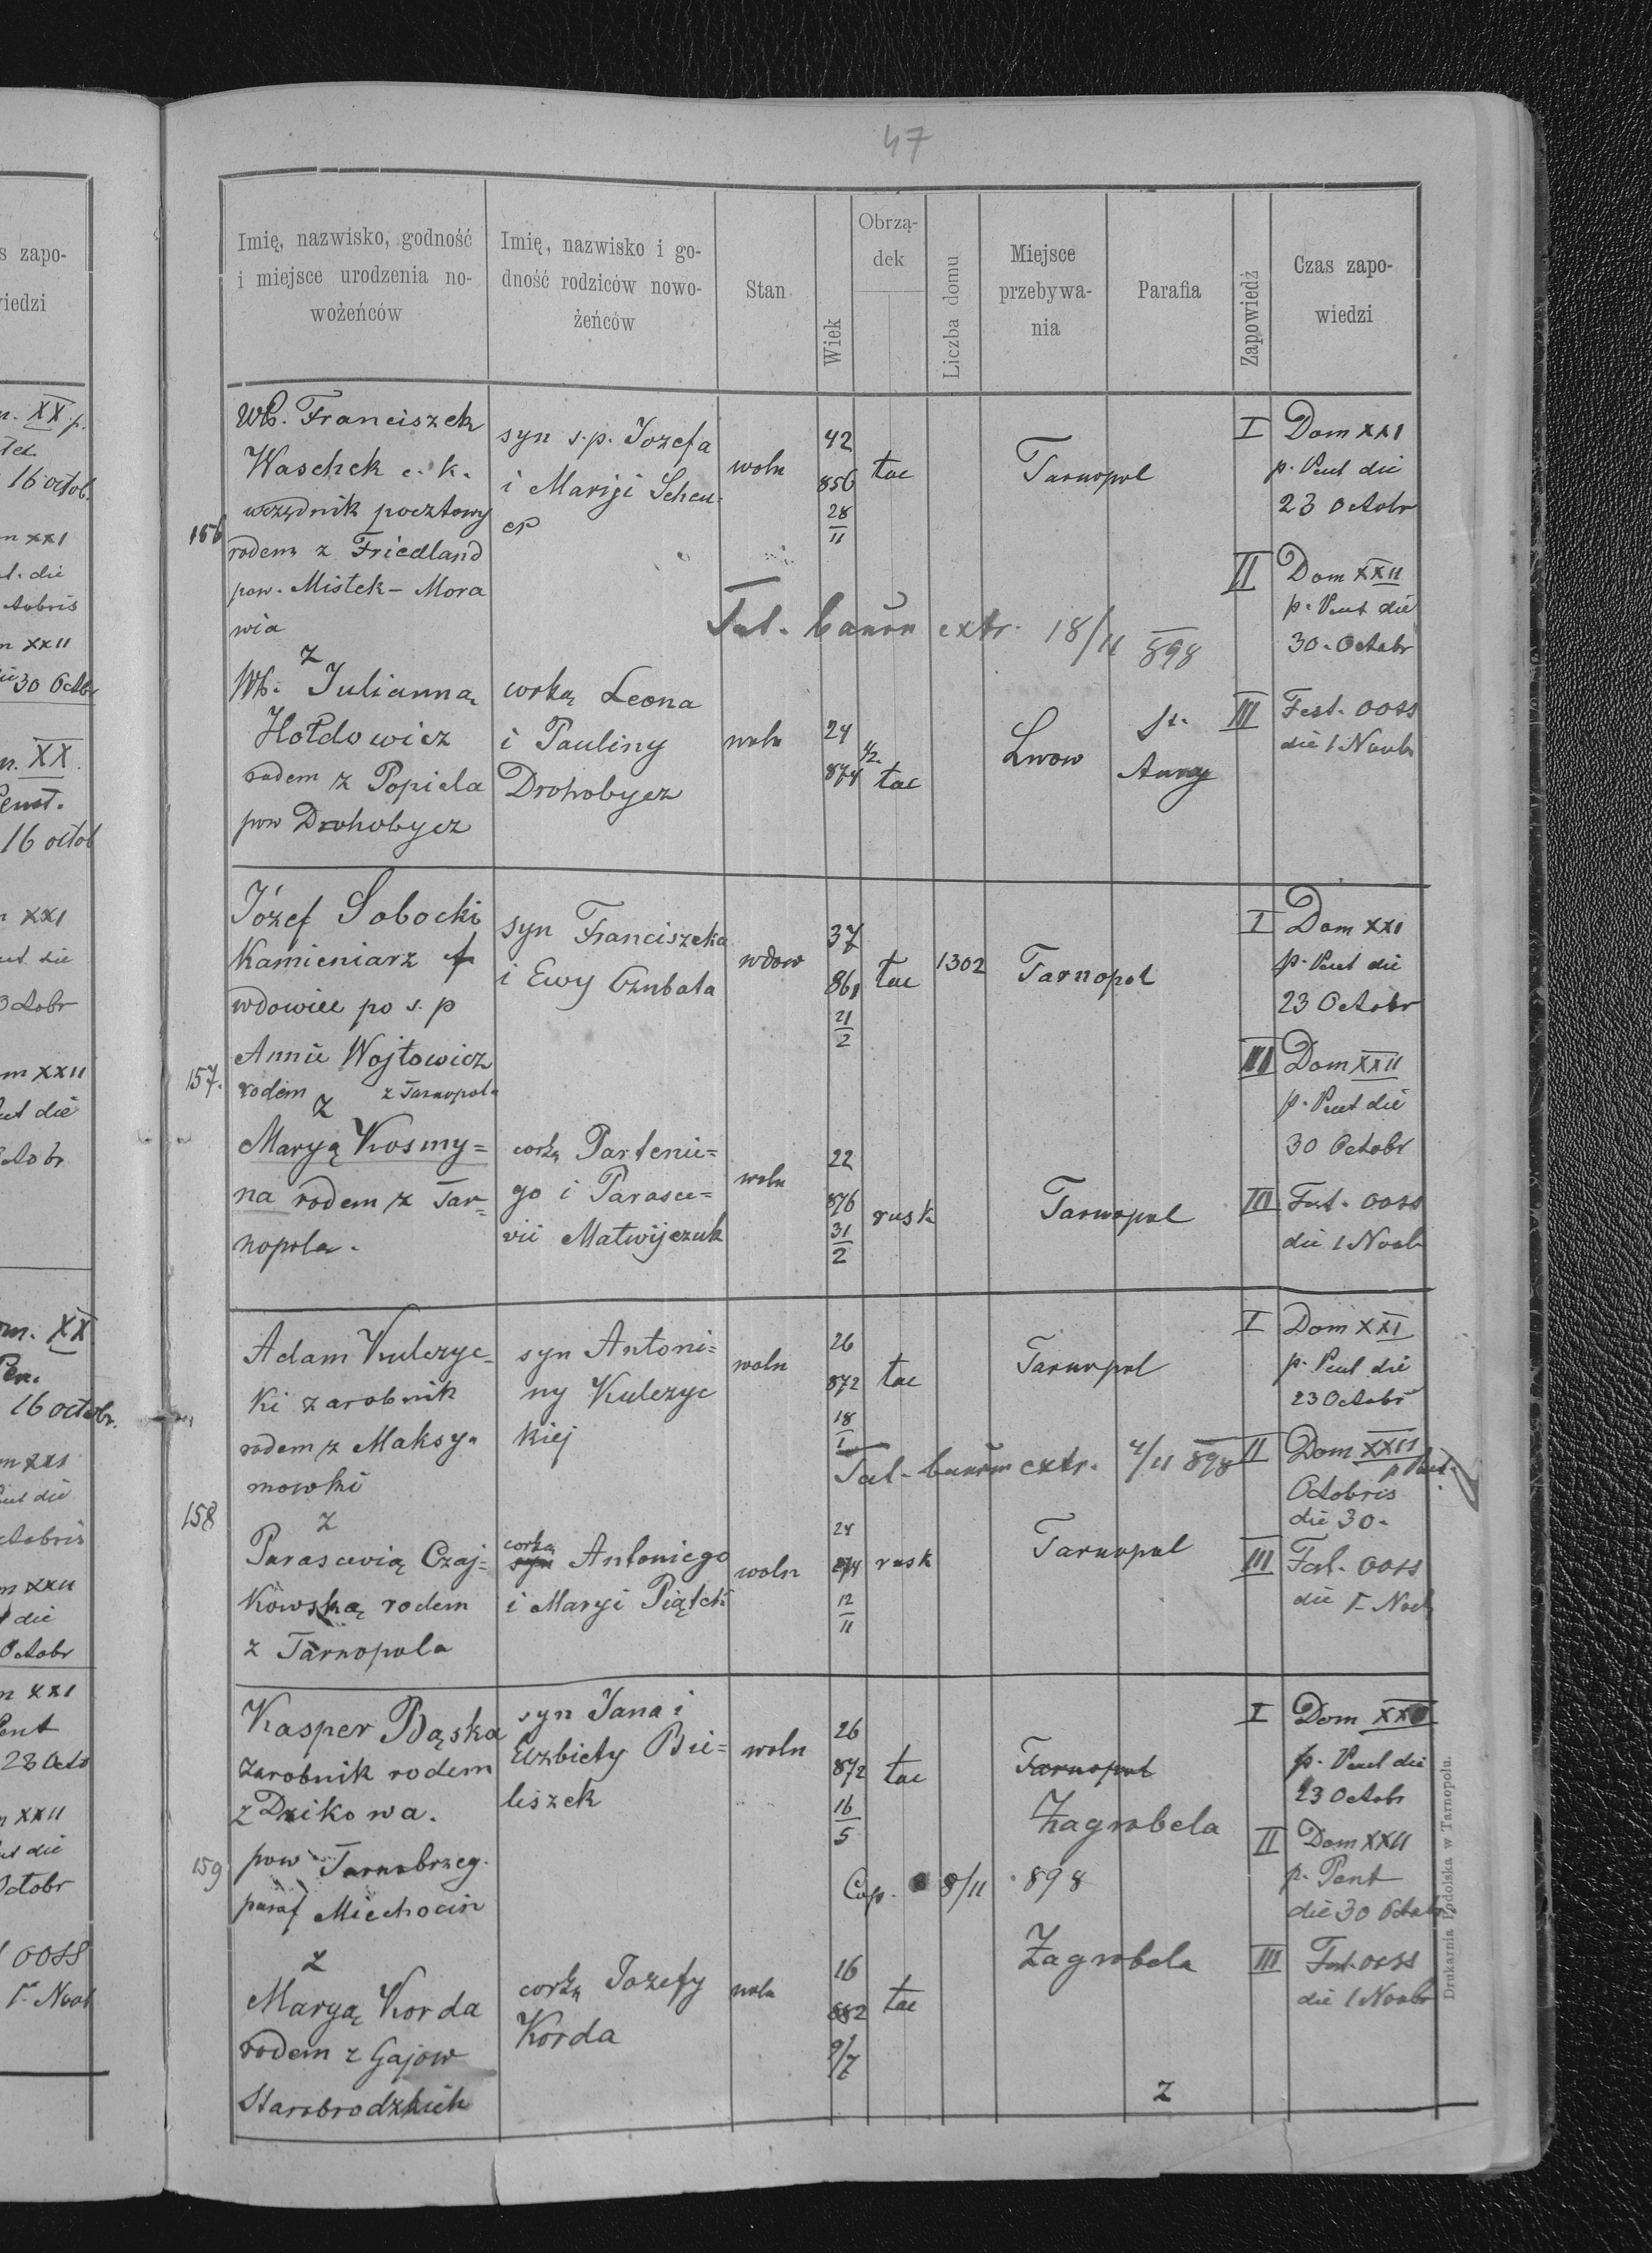 47
Imię, nazwisko, godność
i miejsce urodzenia no-
wożeńców
Imię, nazwisko i go-
dność rodziców nowo-
żeńców
Stan
Wiek
Obrzą-
dek
Liczba domu
Miejsce
przebywa-
nia
Parafia
Zapowiedź
Czas zapo-
wiedzi
156
Wł. Franciszek
Waschek c. k.
urzędnik pocztowy
rodem z Friedland
pow. Mistek - Mora
wia
syn s.p. Jozefa
i Maryi Scheu-
er
woln
42
856
28
11
łac
Tarnopol
I Dom XXI
p. Pent die
23 Octobr
II Dom XXII
p. Pent die
30. Octobr
Tal. bannn extr. 18/11 898
z
Wł. Julianną
Hołdowicz
rodem z Popiela
pow Drohobycz
corką Leona
i Pauliny
Drohobycz
woln
24
874
4/2
łac
Lwow
St.
Anny
III Fest. OOSS
die 1 Novbr
157.
Józef Sobocki
Kamieniarz
wdowiec po s. p
Annie Wojtowicz
rodem z Tarnopola
syn Franciszeka
i Ewy Czubata
wdow
37
861
21
2
łac
1302
Tarnopol
I Dom XXI
p. Pent die
23 Octobr
III Dom XXII
p. Pent die
30 Octobr
z
Maryą Kosmy=
na rodem z Tar=
nopola.
corką Partenie=
go i Parasce=
vii Matwijczuk
woln
22
876
31
2
rusk
Tarnopol
III Fest. OOSS
die 1 Novb
158
Adam Kulczyc=
ki zarobnik
rodem z Maksy=
mowki
syn Antoni=
ny Kulczyc
kiej
woln
26
872
18
1
łac
Tarnopol
I Dom XXI
p. Pent die
23 Octobr
Tal. bannm extr. 4/11 898
II Dom XXII
p Pent.
Octobris
die 30.
z
Parascevią Czaj=
kowską rodem
z Tarnopola
corką
syn Antoniego
i Maryi Piątek
woln
24
874
12
11
rusk
Tarnopol
III Fest. OOSS
die 1 Novb
159
Kasper Bąska
zarobnik rodem
z Dzikowa.
pow Tarnobrzeg.
paraf Miechocin
syn Jana i
Elzbiety Bie=
liszek
woln
26
872
16
5
łac
Tarnopol
Zagrobela
I Dom XXI
p. Pent die
23 Octobr
II Dom XXII
p. Pent
die 30 Octobr
Cop. 8/11 898
z
Maryą Korda
rodem z Gajow
Starobrodzkich
corką Jozefy
Korda
woln
16
882
9/7
łac
Zagrobela
III Fest. OOSS
die 1 Novbr
z
Drukarnia Podolska w Tarnopolu.